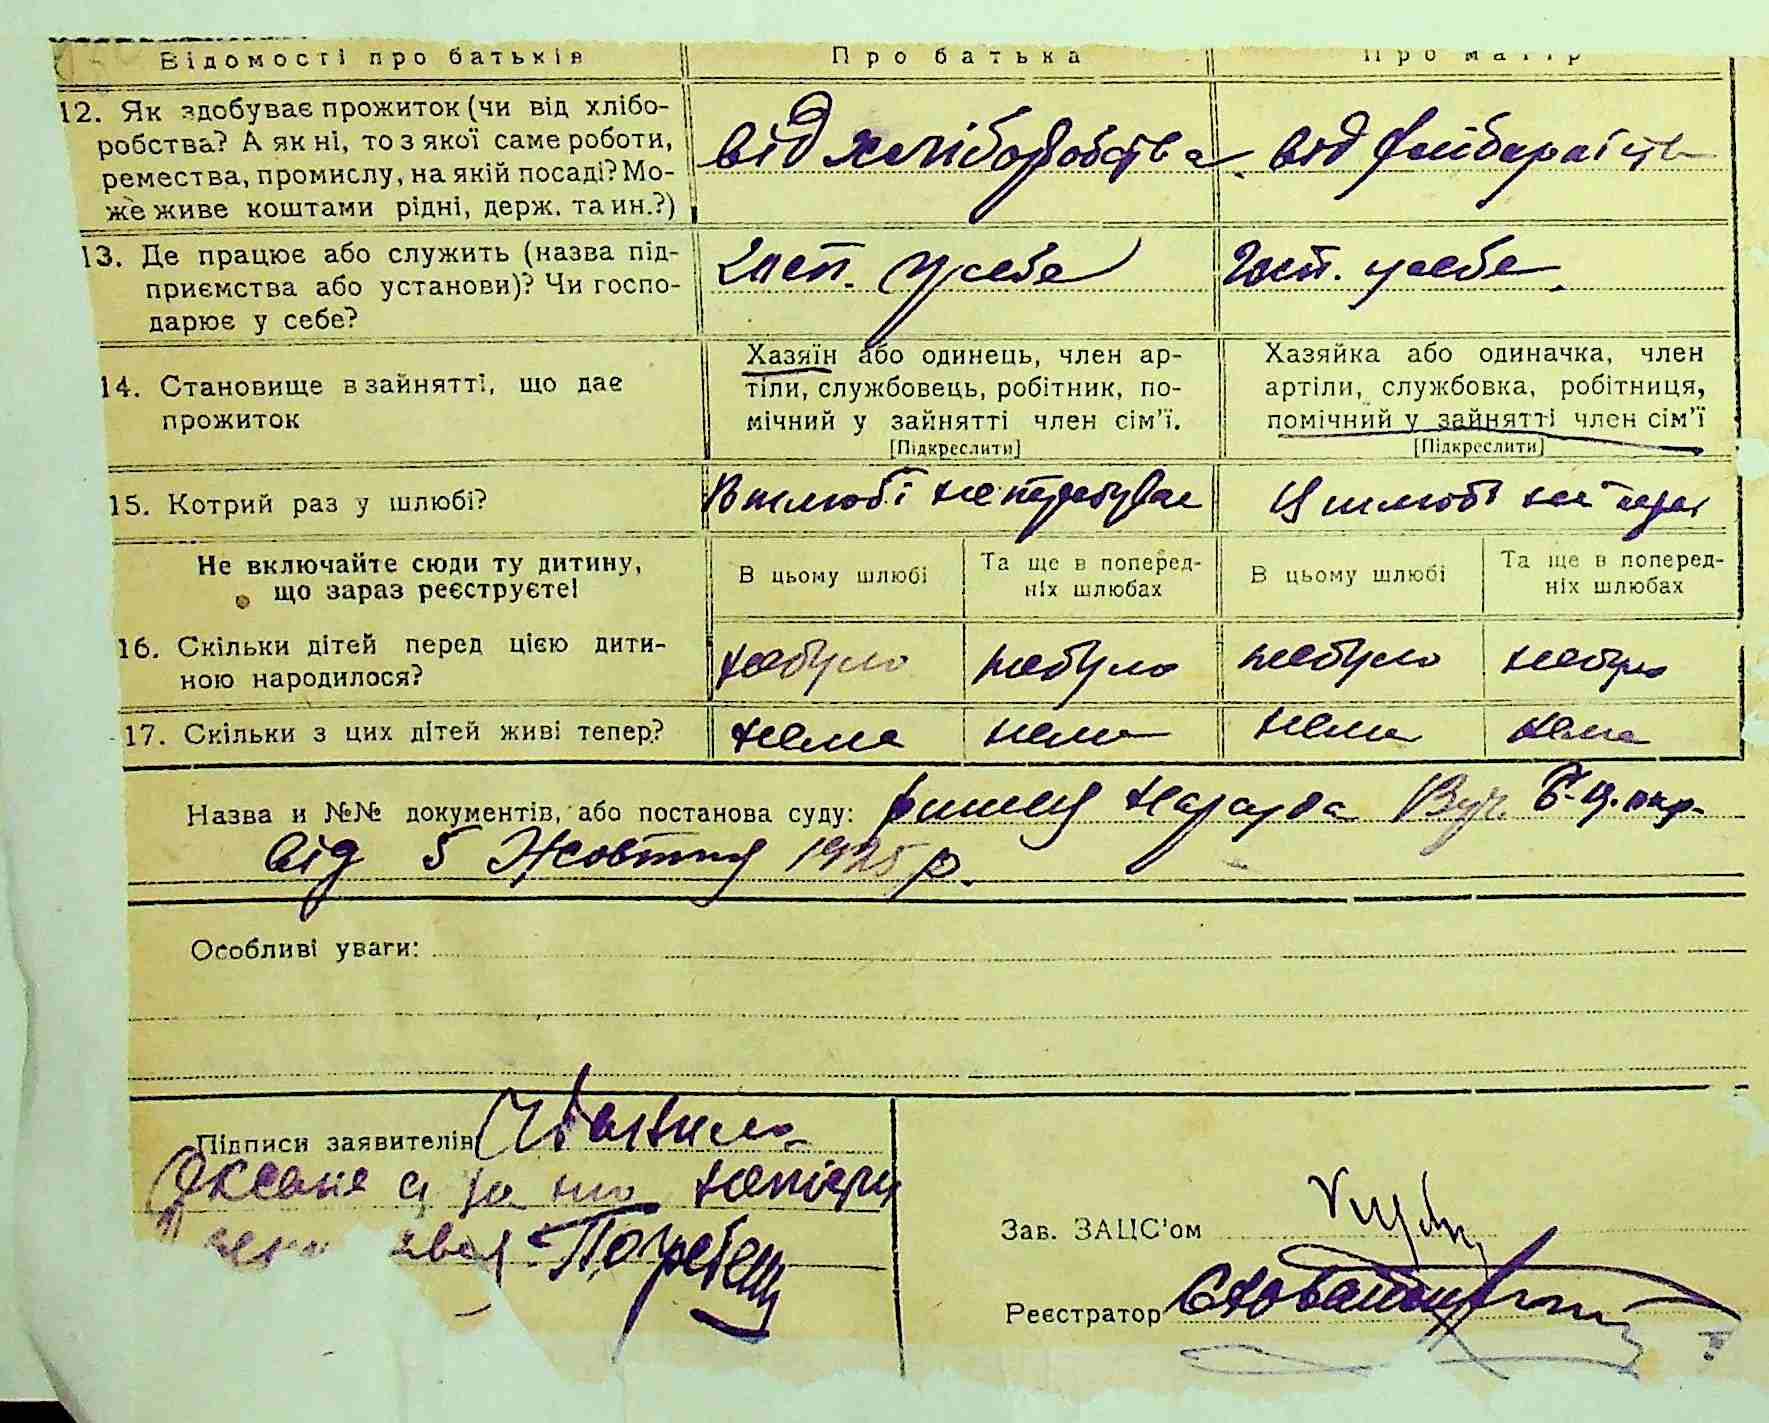 Відомості про батьків Про батька Про матір
12. Як здобуває прожиток (чи від хлібо-
робства? А як ні, то з якої саме роботи,
ремества, промислу, на якій посаді? Мо-
же живе коштами рідні, держ. та ин.?)
від хліборобства від
13. Де працює або служить (назва під-
приємства або установи)? Чи госпо-
дарює у себе?
госп. у себе госп. у себе
14. Становище в зайнятті, що дає
прожиток
Хазяїн або одинець, член ар-
тіли, службовець, робітник, по-
мічний у зайнятті член сім'ї.
[Підкреслити]
Хазяйка або одиначка, член
артіли, службовка, робітниця,
помічний у зайнятті член сім'ї
[Підкреслити]
15. Котрий раз у шлюбі?
В шлюбі не перебував У шлюбі не
Не включайте сюди ту дитину,
що зараз реєструєте!
В цьому шлюбі
Та ще в поперед-
ніх шлюбах
В цьому шлюбі
Та ще в поперед-
ніх шлюбах
16. Скільки дітей перед цією дити-
ною народилося?
небуло небуло небуло небуло
17. Скільки з цих дітей живі тепер?
нема нема нема нема
Назва и №№ документів, або постанова суду:
від 5 Жовтня 1925 р.
Особливі уваги:
Підписи заявителів
Оксана а за
Зав. ЗАЦС'ом
Реєстратор